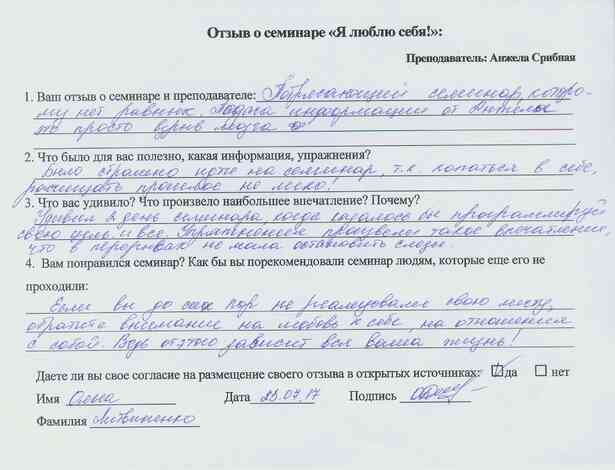 Отзыв о семинаре «Я люблю себя!»:
Преподаватель: Анжела Срибная
1. Ваш отзыв о семинаре и преподавателе: Потрясающий семинар, которо-
му нет равных. Подача информации от Анжелы
это просто взрыв мозга
2. Что было для вас полезно, какая информация, упражнения?
Было страшно идти на семинар, т.к. копаться в себе,
расчищать прошлое не легко!
3. Что вас удивило? Что произвело наибольшее впечатление? Почему?
Удивил 2 день семинара, когда казалось бы программируй
свою цель и все. Упражнения произвели такое впечатление,
что в перерывах не могла остановить слезы.
4. Вам понравился семинар? Как бы вы порекомендовали семинар людям, которые еще его не
проходили:
Если вы до сих пор не реализовали свою мечту,
обратите внимание на любовь к себе, на отношения
с собой. Ведь от этого зависит вся ваша жизнь!
Даете ли вы свое согласие на размещение своего отзыва в открытых источниках: да нет
Имя Олена Дата 23.07.17 Подпись
Фамилия Литвиненко